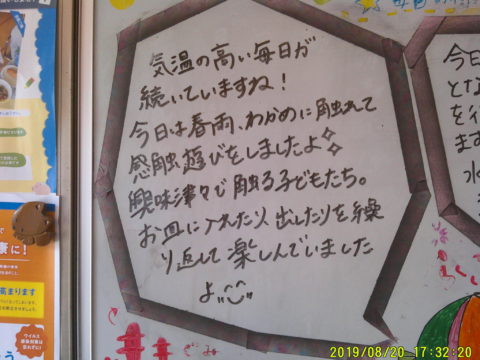 気温の高い毎日が
続いていますね!
今日は春雨、わかめに触れて
感触遊びをしましたよ✧
興味津々で触る子どもたち。
お皿に入れたり、出したりを繰
り返して楽しんでいました
よ
今日
とな
を行
ます
水
康に!
高まります
ウイルス
2019/08/20 17:32:20